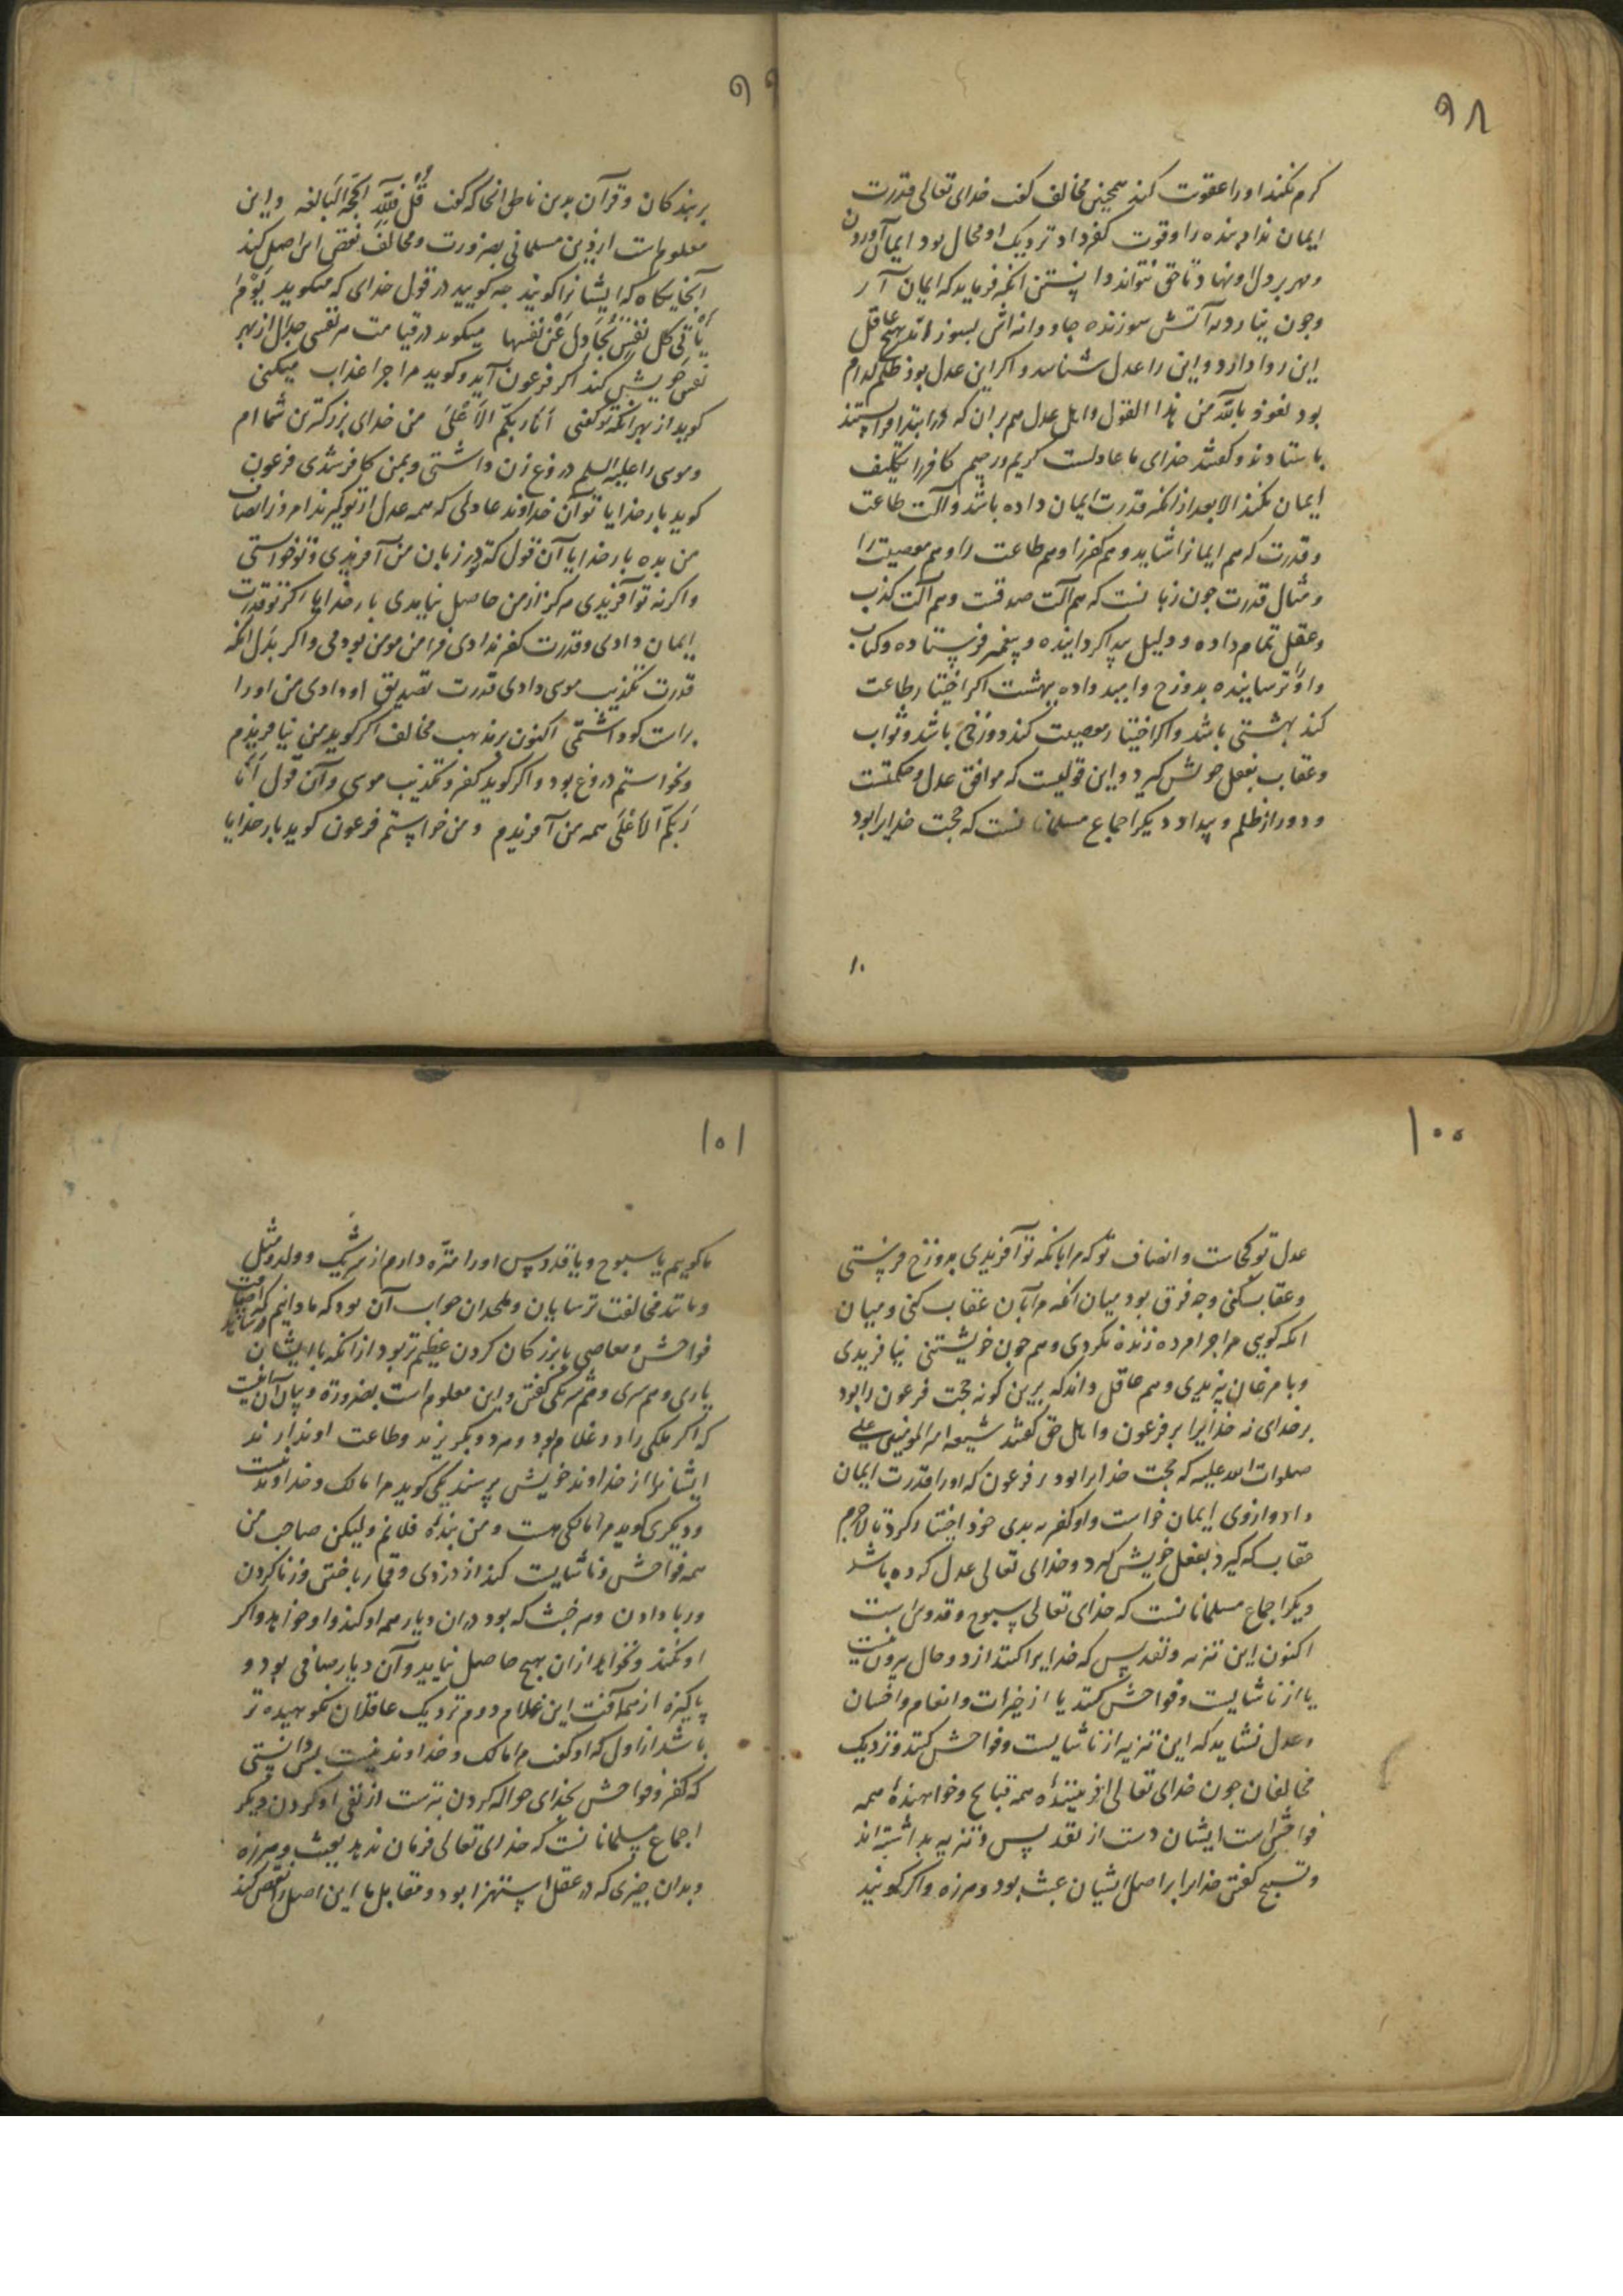 ۹۸
کرم نکند او را عقوبت کند همچنین مخالف کفت خدای تعالی قدرت
ایمان نداد بنده را و قوت کفر داد نزدیک او محال بود ایمان آوردن
و مهر بر دل او نهاد تا حق نتواند دانستن انکه فرماید که ایمان آر
و چون نیارد به آتش سوزنده جاودانه اش بسوزاند هیچ عاقل
این روا دارد و این را عدل شناسد و اکر این عدل بود ظلم کدام
بود نعوذ بالله من هذا القول و اهل عدل هم بران که در ابتدا
باستادند و کفتند خدای ما عادلست کریم و رحیم کافر را تکلیف
ایمان نکند الا بعد از انکه قدرت ایمان داده باشد و آلت طاعت
و قدرت که هم ایمانرا شاید و هم کفر را و هم طاعت را و هم معصیت را
و مثال قدرت چون زبانست که هم آلت صدقست و هم آلت کذب
و عقل تمام داده و دلیل پیدا کردانیده و پیغمبر فرستاده و کتاب
و او را ترسانیده بدوزخ و امید داده ببهشت اکر اختیار طاعت
کند بهشتی باشد و اکر اختیار معصیت کند دوزخی باشد و ثواب
و عقاب بفعل خویش کیرد و این قولیست که موافق عدل و حکمتست
و دور از ظلم و بیداد دیکر اجماع مسلمانانست که حجت خدایرا بود
۱۰
۹۹
بر بندکان و قرآن بدین ناطق انجا که کفت قُل فَلِلّهِ الحجّة البَالغه و این
معلوم است از دین مسلمانی بضرورت و مخالف نقض این اصل کند
آنجایکاه که ایشانرا کویند چه کویید در قول خدای که میکوید یَومَ
یَأتی کل نَفسٍ تُجادِلُ عَن نفسها میکوید در قیامت هر نفسی جدل از بهر
نفس خویش کند اکر فرعون آید و کوید مرا چرا عذاب میکنی
کوید از بهر انکه تو کفتی اَنَا ربکم الاَعْلَی من خدای بزرکترین شما ام
و موسی را علیه السلم دروغ زن داشتی و بمن کافر شدی فرعون
کوید بار خدایا تو آن خداوند عادلی که همه عدل از تو کیرند امروز انصاف
من بده بار خدایا آن قول که در زبان من آفریدی و تو خواستی
و اکر نه تو آفریدی هرکز از من حاصل نیامدی بار خدایا اکر تو قدرت
ایمان دادی و قدرت کفر ندادی مرا من مومن بودمی و اکر بدل انکه
قدرت تکذیب موسی دادی قدرت تصدیق او دادی من او را
راست کو داشتمی اکنون بر مذهب مخالف اکر کوید من نیافریدم
و نخواستم دروغ بود و اکر کوید کفر و تکذیب موسی و آن قول اَنَا
رَبکم الاَعْلَی همه من آفریدم و من خواستم فرعون کوید بار خدایا
۱۰۰
عدل تو کجاست و انصاف تو که مرا بانکه تو آفریدی بدوزخ فرستی
و عقاب کنی و چه فرق بود میان انکه مرا بآن عقاب کنی و میان
انکه کویی مرا چرا مرده زنده نکردی و هم چون خویشتنی نیافریدی
و با مرغان نپریدی و هم عاقل داند که برین کونه حجت فرعون را بود
بر خدای نه خدایرا بر فرعون و اهل حق کفتند شیعه امیر المومنین علی
صلوات الله علیه که حجت خدایرا بود بر فرعون که او را قدرت ایمان
داد و از وی ایمان خواست و او کفر به بدی خود اختیار کرد تا لاجرم
عقاب که کیرد بفعل خویش کیرد و خدای تعالی عدل کرده باشد
دیکر اجماع مسلمانانست که خدای تعالی سبوح و قدوس است
اکنون این تنزیه و تقدیس که خدایرا کنند از دو حال بیرون نیست
یا از ناشایست و فواحش کنند یا از خیرات و انعام و احسان
و عدل نشاید که این تنزیه از ناشایست و فواحش کنند و نزدیک
مخالفان چون خدای تعالی آفریننده همه قبایح و خواهنده همه
فواحش است ایشان دست از تقدیس و تنزیه بداشته اند
و تسبیح کفتن خدایرا بر اصل ایشان عبث بود و هرزه و اکر کویند
۱۰۱
ما کوییم یا سبوح و یا قدوس او را منزه داریم از شریک و ولد و مثل
و مانند مخالفت ترسایان و ملحدان جواب آن بود که ما دانیم که اضافت
فواحش و معاصی با بزرکان کردن عظیم تر بود از انکه با ایشان
یاری و همسری و هم شرکی کفتن و این معلوم است بضرورة و بیان آن آنست
که اکر ملکی را دو غلام بود و هر دو بکریزند و طاعت او ندارند
ایشانرا از خداوند خویش پرسند یکی کوید مرا مالک و خداوند نیست
و دیکری کوید مرا مالکی هست و من بنده فلانم و لیکن صاحب من
همه فواحش و ناشایست کند از دزدی و قمار باختن و زنا کردن
و ربا دادن و هر خبث که بود در ان دیار همه او کند و او خواهد و اکر
او نکند و نخواهد از ان هیچ حاصل نیاید و آن دیار صافی بود و
پاکیزه از همه آفت این غلام دوم نزدیک عاقلان نکوهیده تر
باشد از اول که او کفت مرا مالک و خداوند نیست پس دانستی
که کفر و فواحش بخدای حواله کردن بترست از نفی او کردن دیکر
اجماع مسلمانانست که خدای تعالی فرمان ندهد بعبث و هرزه
و بدان چیزی که در عقل استهزا بود و مقابل ما این اصل را نقض کند